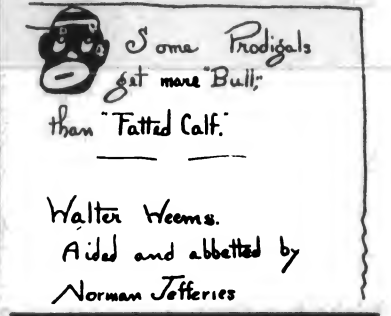 Some Prodigals
get more "Bull,"
than "Fatted Calf."
Walter Weems.
Aided and abbetted by
Norman Jefferies